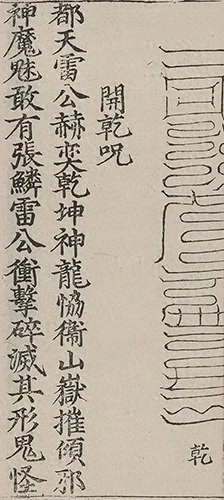 乾
開乾咒
都天雷公赫奕乾坤神龍恊衛山嶽摧傾邪
神魔魅敢有張鱗雷公衝擊碎滅其形鬼怪